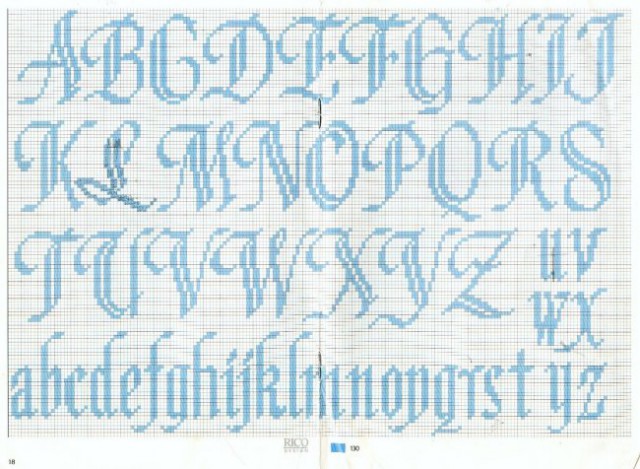 A B C D E F G H I J
K L M N O P Q R S
T U V W X Y Z u v
w x
a b c d e f g h i j k l m n o p q r s t y z
RICO
DESIGN
130
18